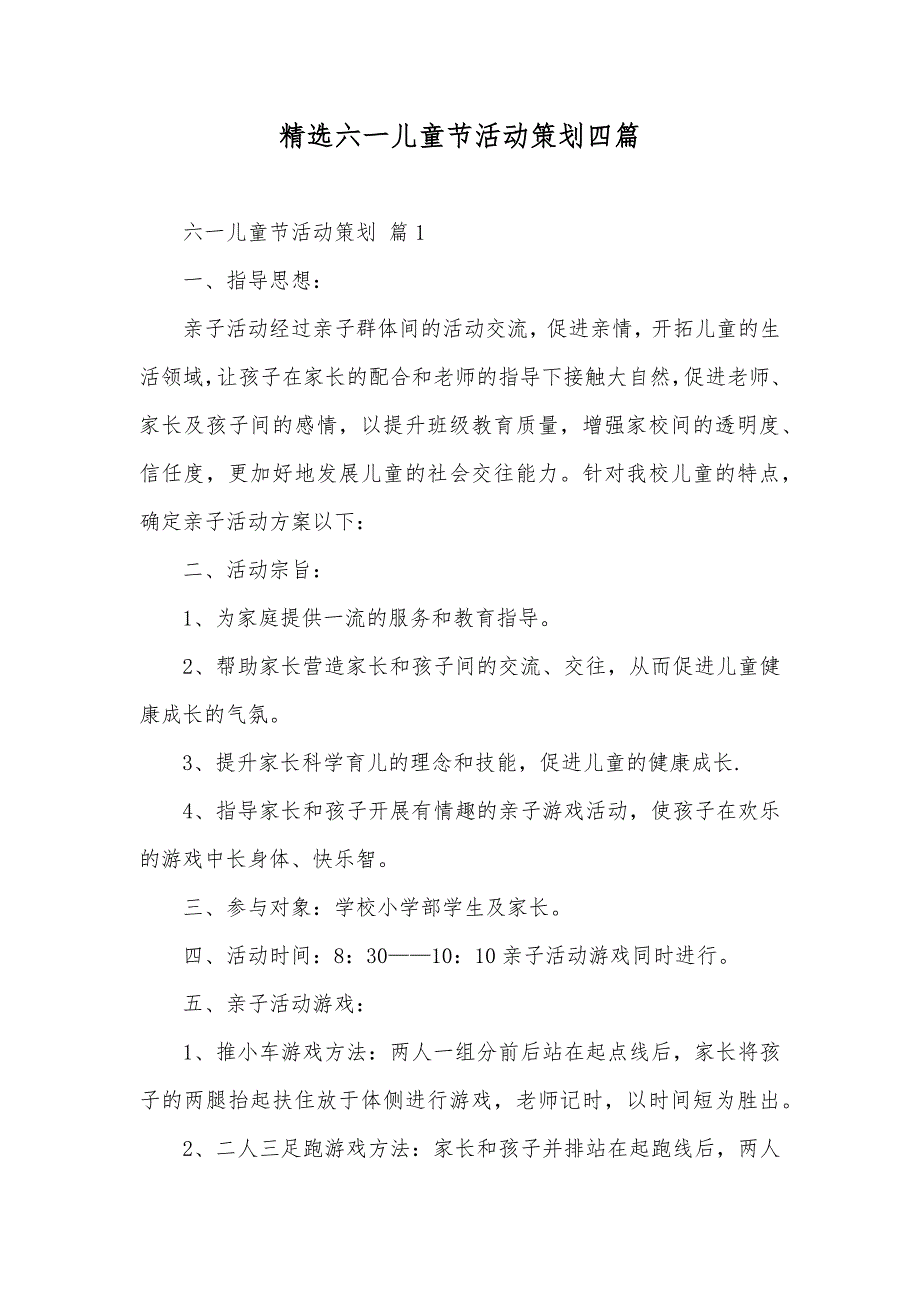 精选六一儿童节活动策划四篇
六一儿童节活动策划 篇1
一、指导思想：
亲子活动经过亲子群体间的活动交流，促进亲情，开拓儿童的生
活领域，让孩子在家长的配合和老师的指导下接触大自然，促进老师、
家长及孩子间的感情，以提升班级教育质量，增强家校间的透明度、
信任度，更加好地发展儿童的社会交往能力。针对我校儿童的特点，
确定亲子活动方案以下：
二、活动宗旨：
1、为家庭提供一流的服务和教育指导。
2、帮助家长营造家长和孩子间的交流、交往，从而促进儿童健
康成长的气氛。
3、提升家长科学育儿的理念和技能，促进儿童的健康成长.
4、指导家长和孩子开展有情趣的亲子游戏活动，使孩子在欢乐
的游戏中长身体、快乐智。
三、参与对象：学校小学部学生及家长。
四、活动时间：8：30——10：10亲子活动游戏同时进行。
五、亲子活动游戏：
1、推小车游戏方法：两人一组分前后站在起点线后，家长将孩
子的两腿抬起扶住放于体侧进行游戏，老师记时，以时间短为胜出。
2、二人三足跑游戏方法：家长和孩子并排站在起跑线后，两人